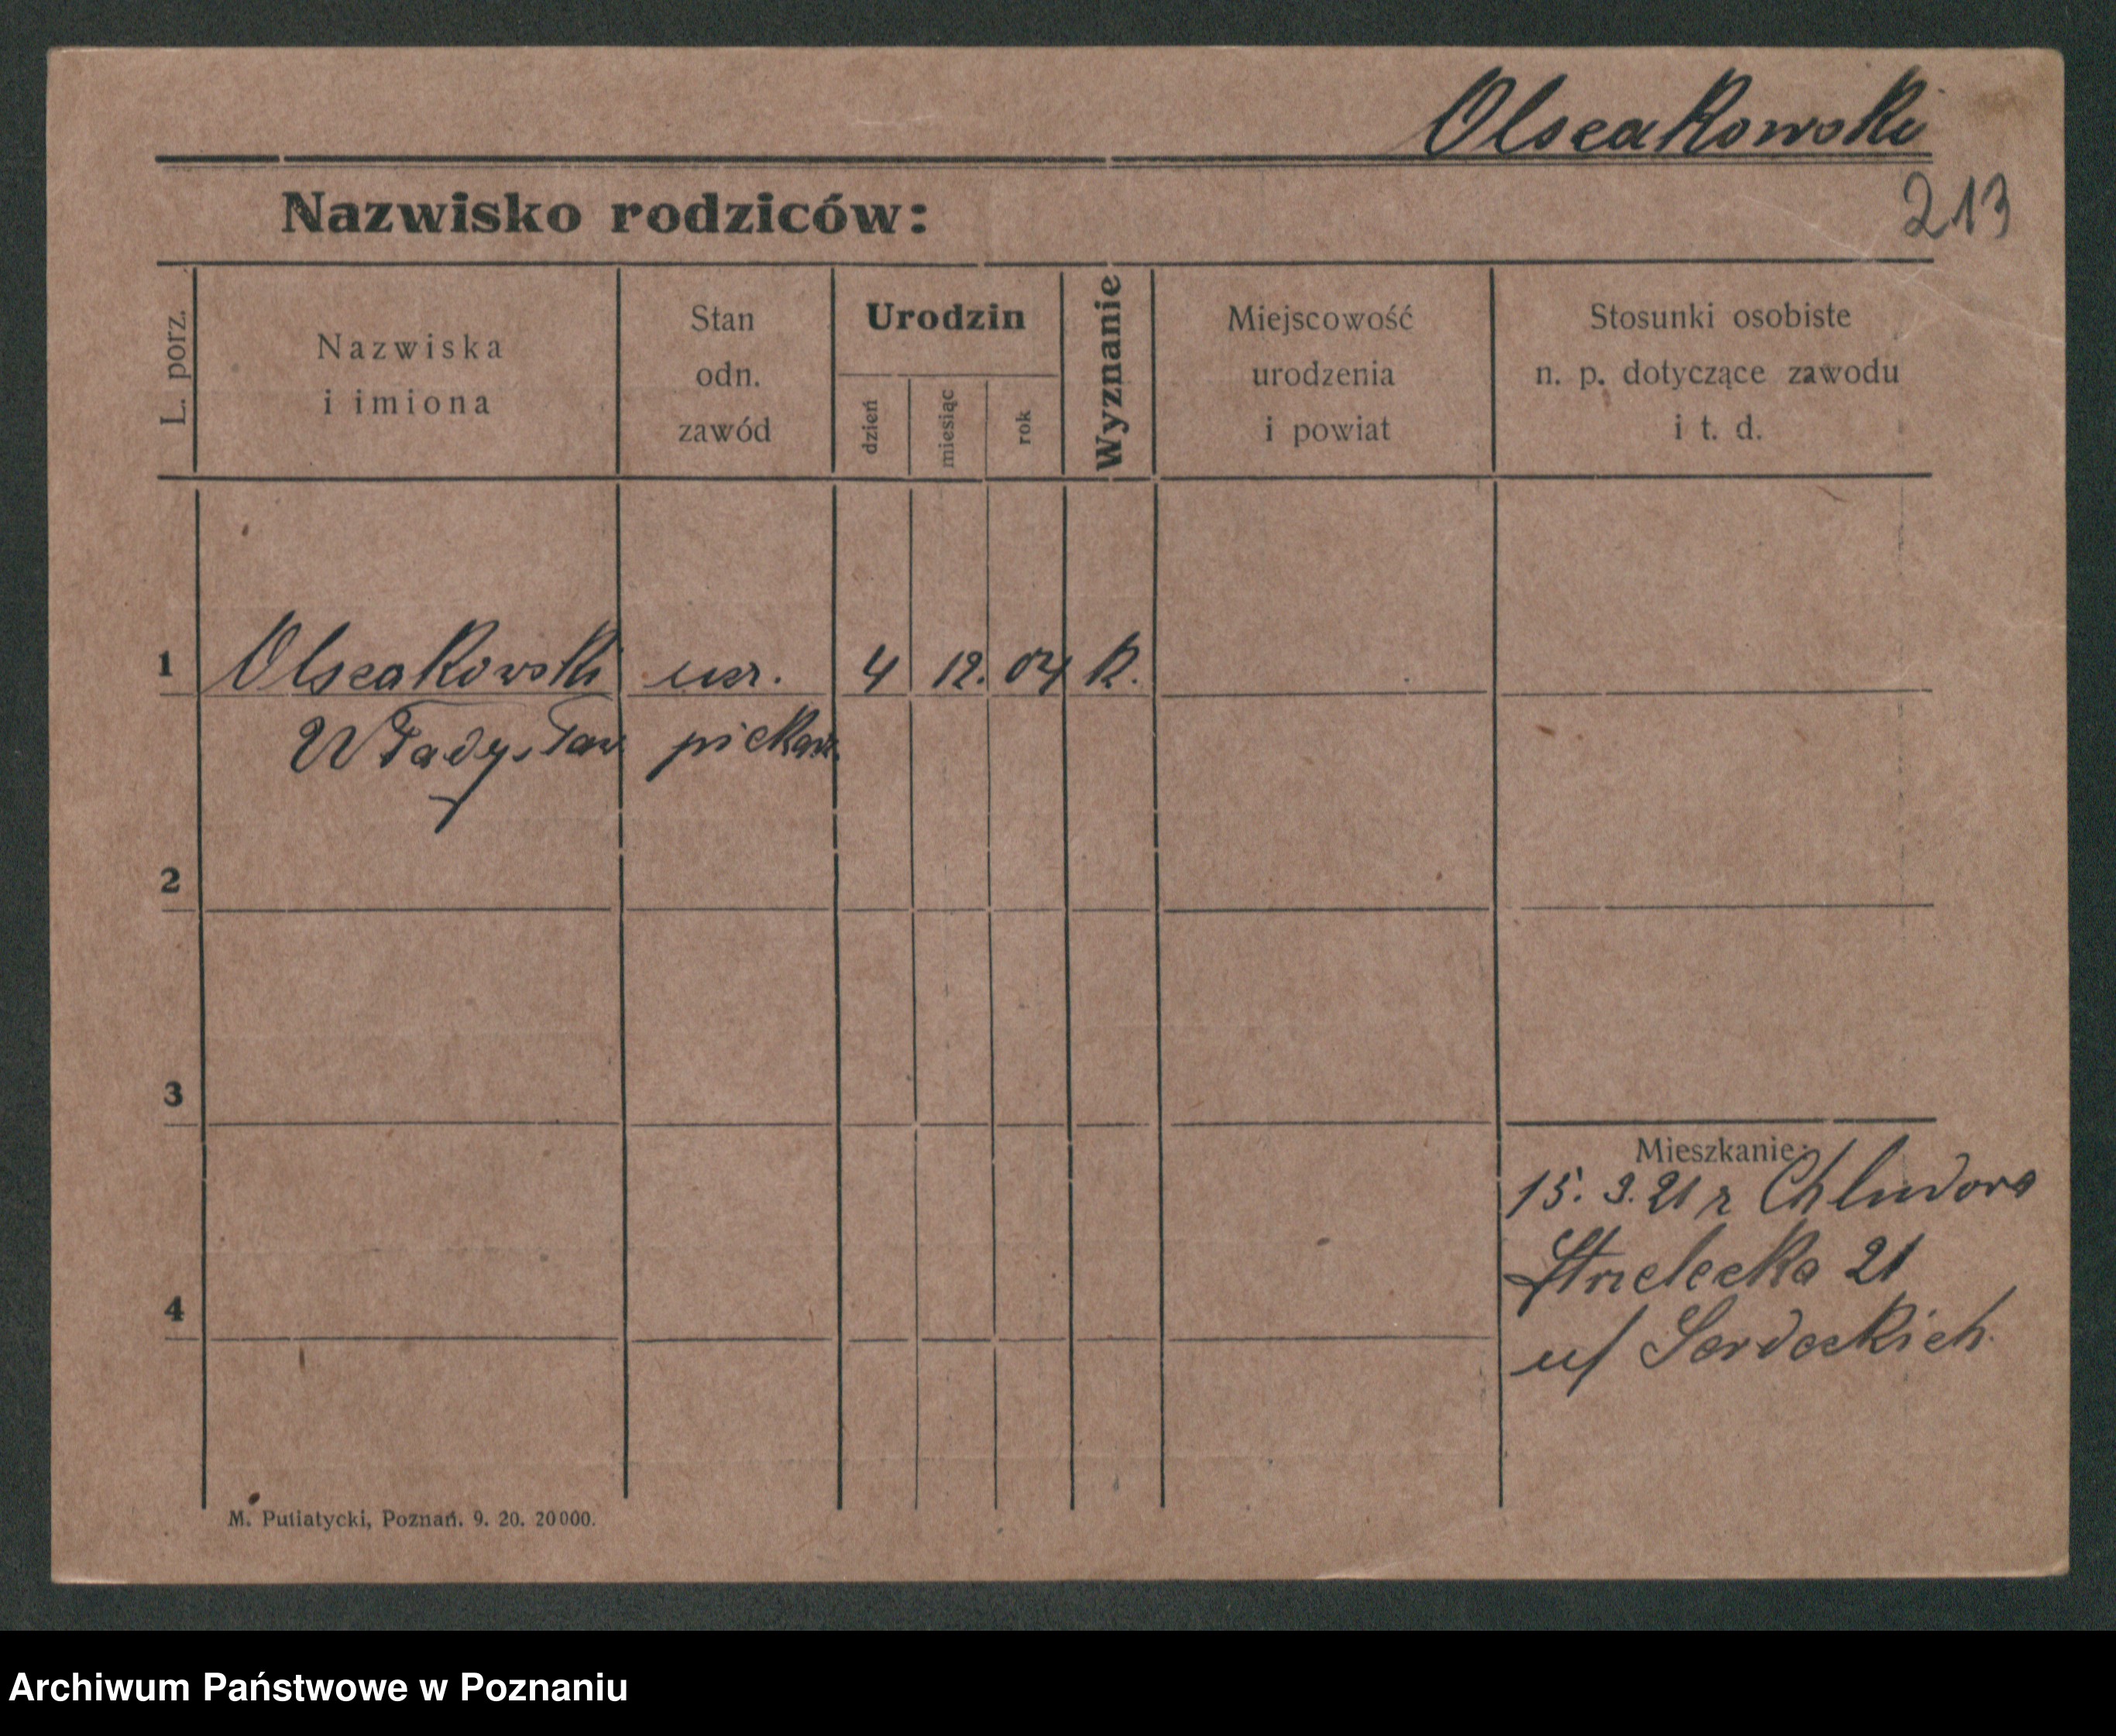 Olszakowski
213
Nazwisko rodziców:
L. porz.
Nazwiska
i imiona
Stan
odn.
zawód
Urodzin
dzień
miesiąc
rok
Wyznanie
Miejscowość
urodzenia
i powiat
Stosunki osobiste
n. p. dotyczące zawodu
i t. d.
1 Olszakowski ucz. 4 12. 04 k.
Władysław piekar.
2
3
4
Mieszkanie:
15. 3. 21 z Chludowa
Strzelecka 21
u/
M. Putiatycki, Poznań. 9. 20. 20000.
Archiwum Państwowe w Poznaniu